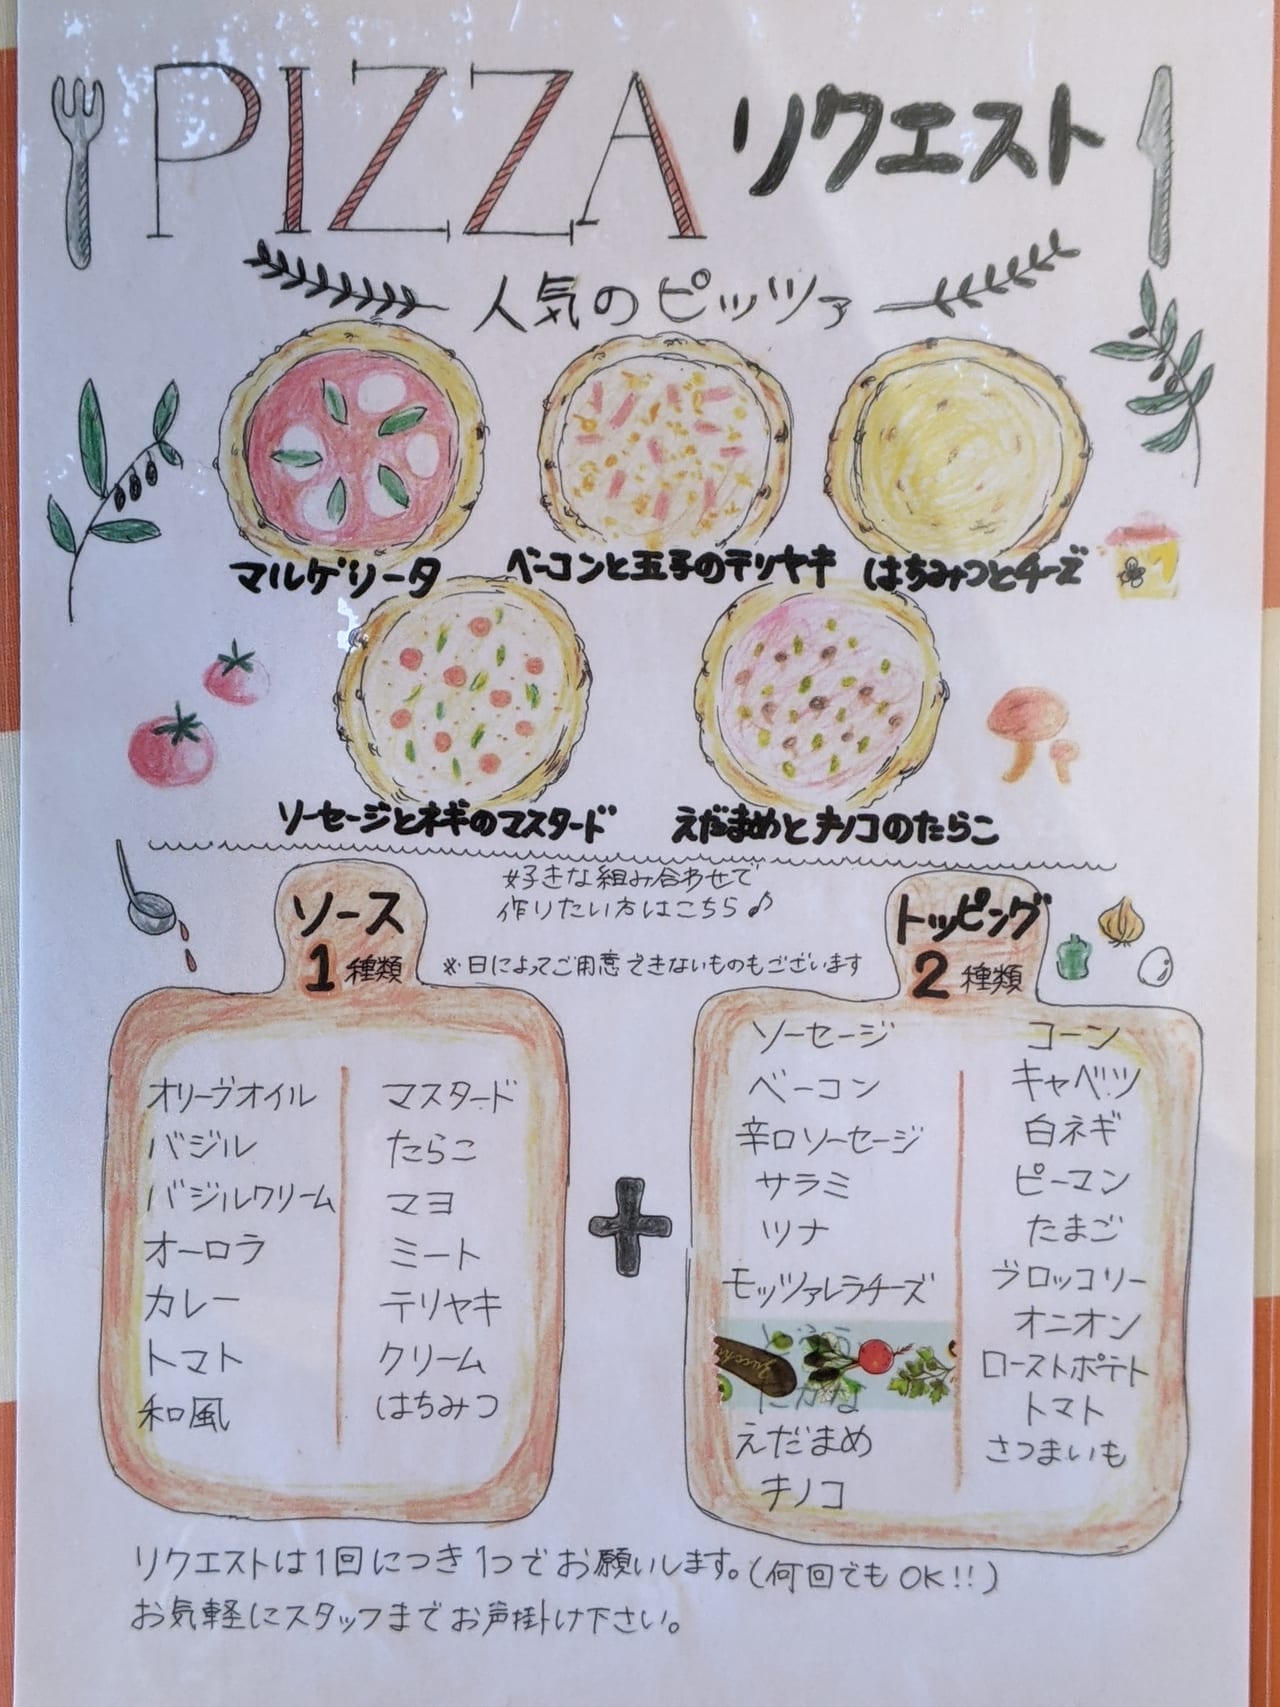 PIZZA リクエスト
人気のピッツァ
マルゲリータ
ベーコンと玉子のテリヤキ
はちみつとチーズ
ソーセージとネギのマスタード
えだまめとキノコのたらこ
好きな組み合わせで
作りたい方はこちら♪
※日によってご用意できないものもございます
ソース
1種類
オリーヴオイル
バジル
バジルクリーム
オーロラ
カレー
トマト
和風
マスタード
たらこ
マヨ
ミート
テリヤキ
クリーム
はちみつ
+
トッピング
2種類
ソーセージ
ベーコン
辛口ソーセージ
サラミ
ツナ
モッツァレラチーズ
えだまめ
キノコ
コーン
キャベツ
白ネギ
ピーマン
たまご
ブロッコリー
オニオン
ローストポテト
トマト
さつまいも
リクエストは1回につき1つでお願いします。(何回でもOK!!)
お気軽にスタッフまでお声掛け下さい。